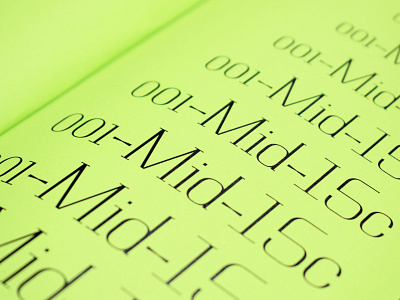 001-Mid-
001-Mid-15
001-Mid-15c
001-Mid-15c
001-Mid-15
Mid-